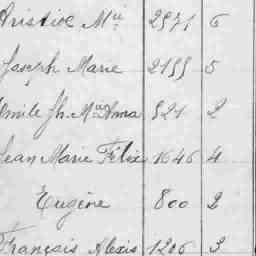 Aristide M.ie 2571 6
Joseph Marie 2155 5
Emile Jh. M.a Anna 521 2
Jean Marie Félix 1646 4
Eugène 800 2
François Alexis 1206 3